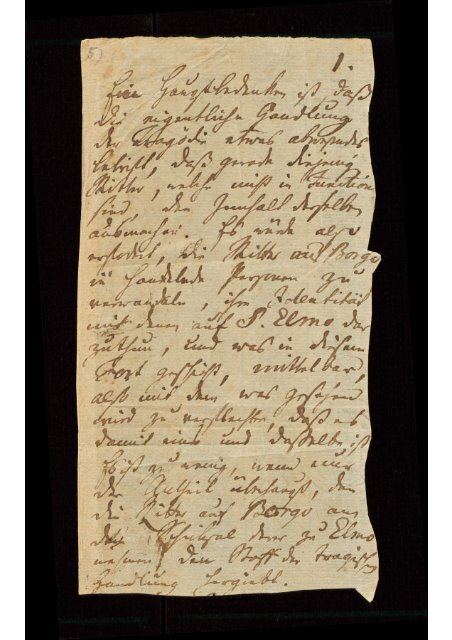 5)
1.
Ein Hauptbedenken ist, daß
die eigentliche Handlung
der Tragödie etwas abwesendes
betrifft, daß gerade diejenig
Ritter, welche nicht in Function
sind, den Innhalt derselben
ausmachen. Es würde also
erfodert, die Ritter auf Borgo
in handelnde Personen zu
verwandeln, ihre Identität
mit denen auf S. Elmo dar
zuthun, und was in diesem
Fort geschieht, mittelbar,
alß mit dem was gesehen
wird zu verflechten, daß es
damit eins und dasselbe ist
Es ist zu wenig, wenn nur
der Antheil überhaupt, den
die Ritter auf Borgo an
dem Schicksal derer zu Elmo
nehmen, den Stoff der tragisch
Handlung hergiebt.